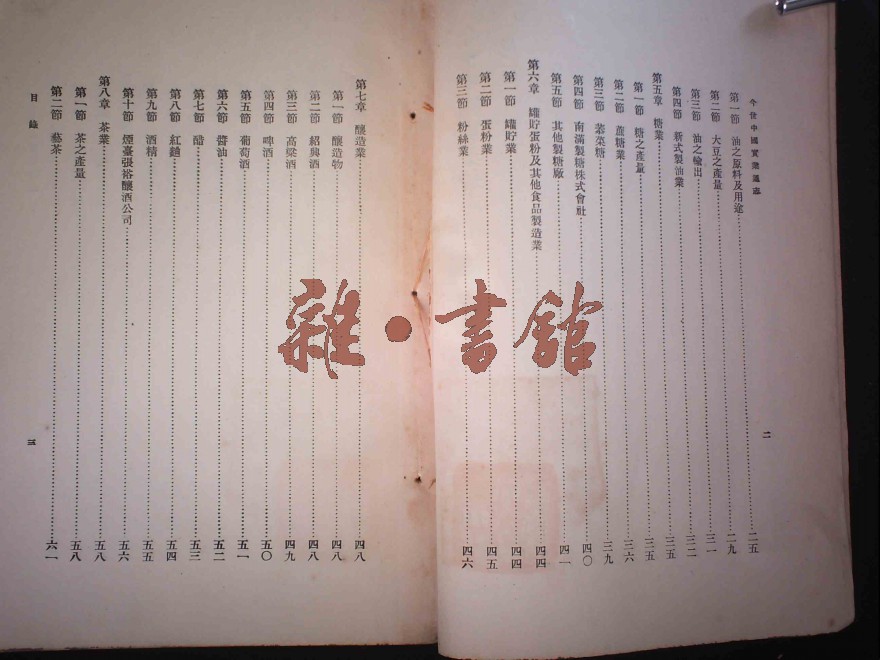 今世中國實業通志
二
第一節 油之原料及用途 二五
第二節 大豆之產量 二九
第三節 油之輸出 三一
第四節 新式製油業 三二
第五章 糖業 三五
第一節 糖之產量 三五
第二節 蔗糖業 三六
第三節 菾菜糖 三九
第四節 南滿製糖株式會社 四〇
第五節 其他製糖廠 四一
第六章 罐貯蛋粉及其他食品製造業 四四
第一節 罐貯業 四四
第二節 蛋粉業 四五
第三節 粉絲業 四六
第七章 釀造業 四八
第一節 釀造物 四八
第二節 紹興酒 四八
第三節 高粱酒 四九
第四節 啤酒 五〇
第五節 葡萄酒 五一
第六節 醬油 五二
第七節 醋 五三
第八節 紅麯 五四
第九節 酒精 五五
第十節 煙臺張裕釀酒公司 五六
第八章 茶業 五八
第一節 茶之產量 五八
第二節 藝茶 六一
目錄
三
雜·書館